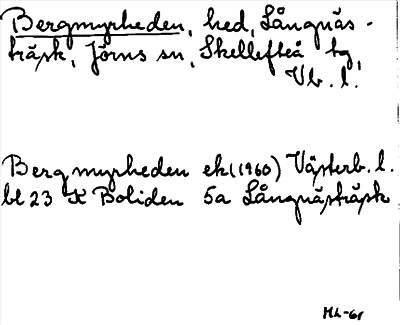 Bergmyrheden, hed, Långnäs-
träsk, Jörns sn, Skellefteå tg,
Vb. l.
Bergmyrheden ek (1960) Västerb. l.
bl 23 K Boliden 5a Långnästräsk
ML-61